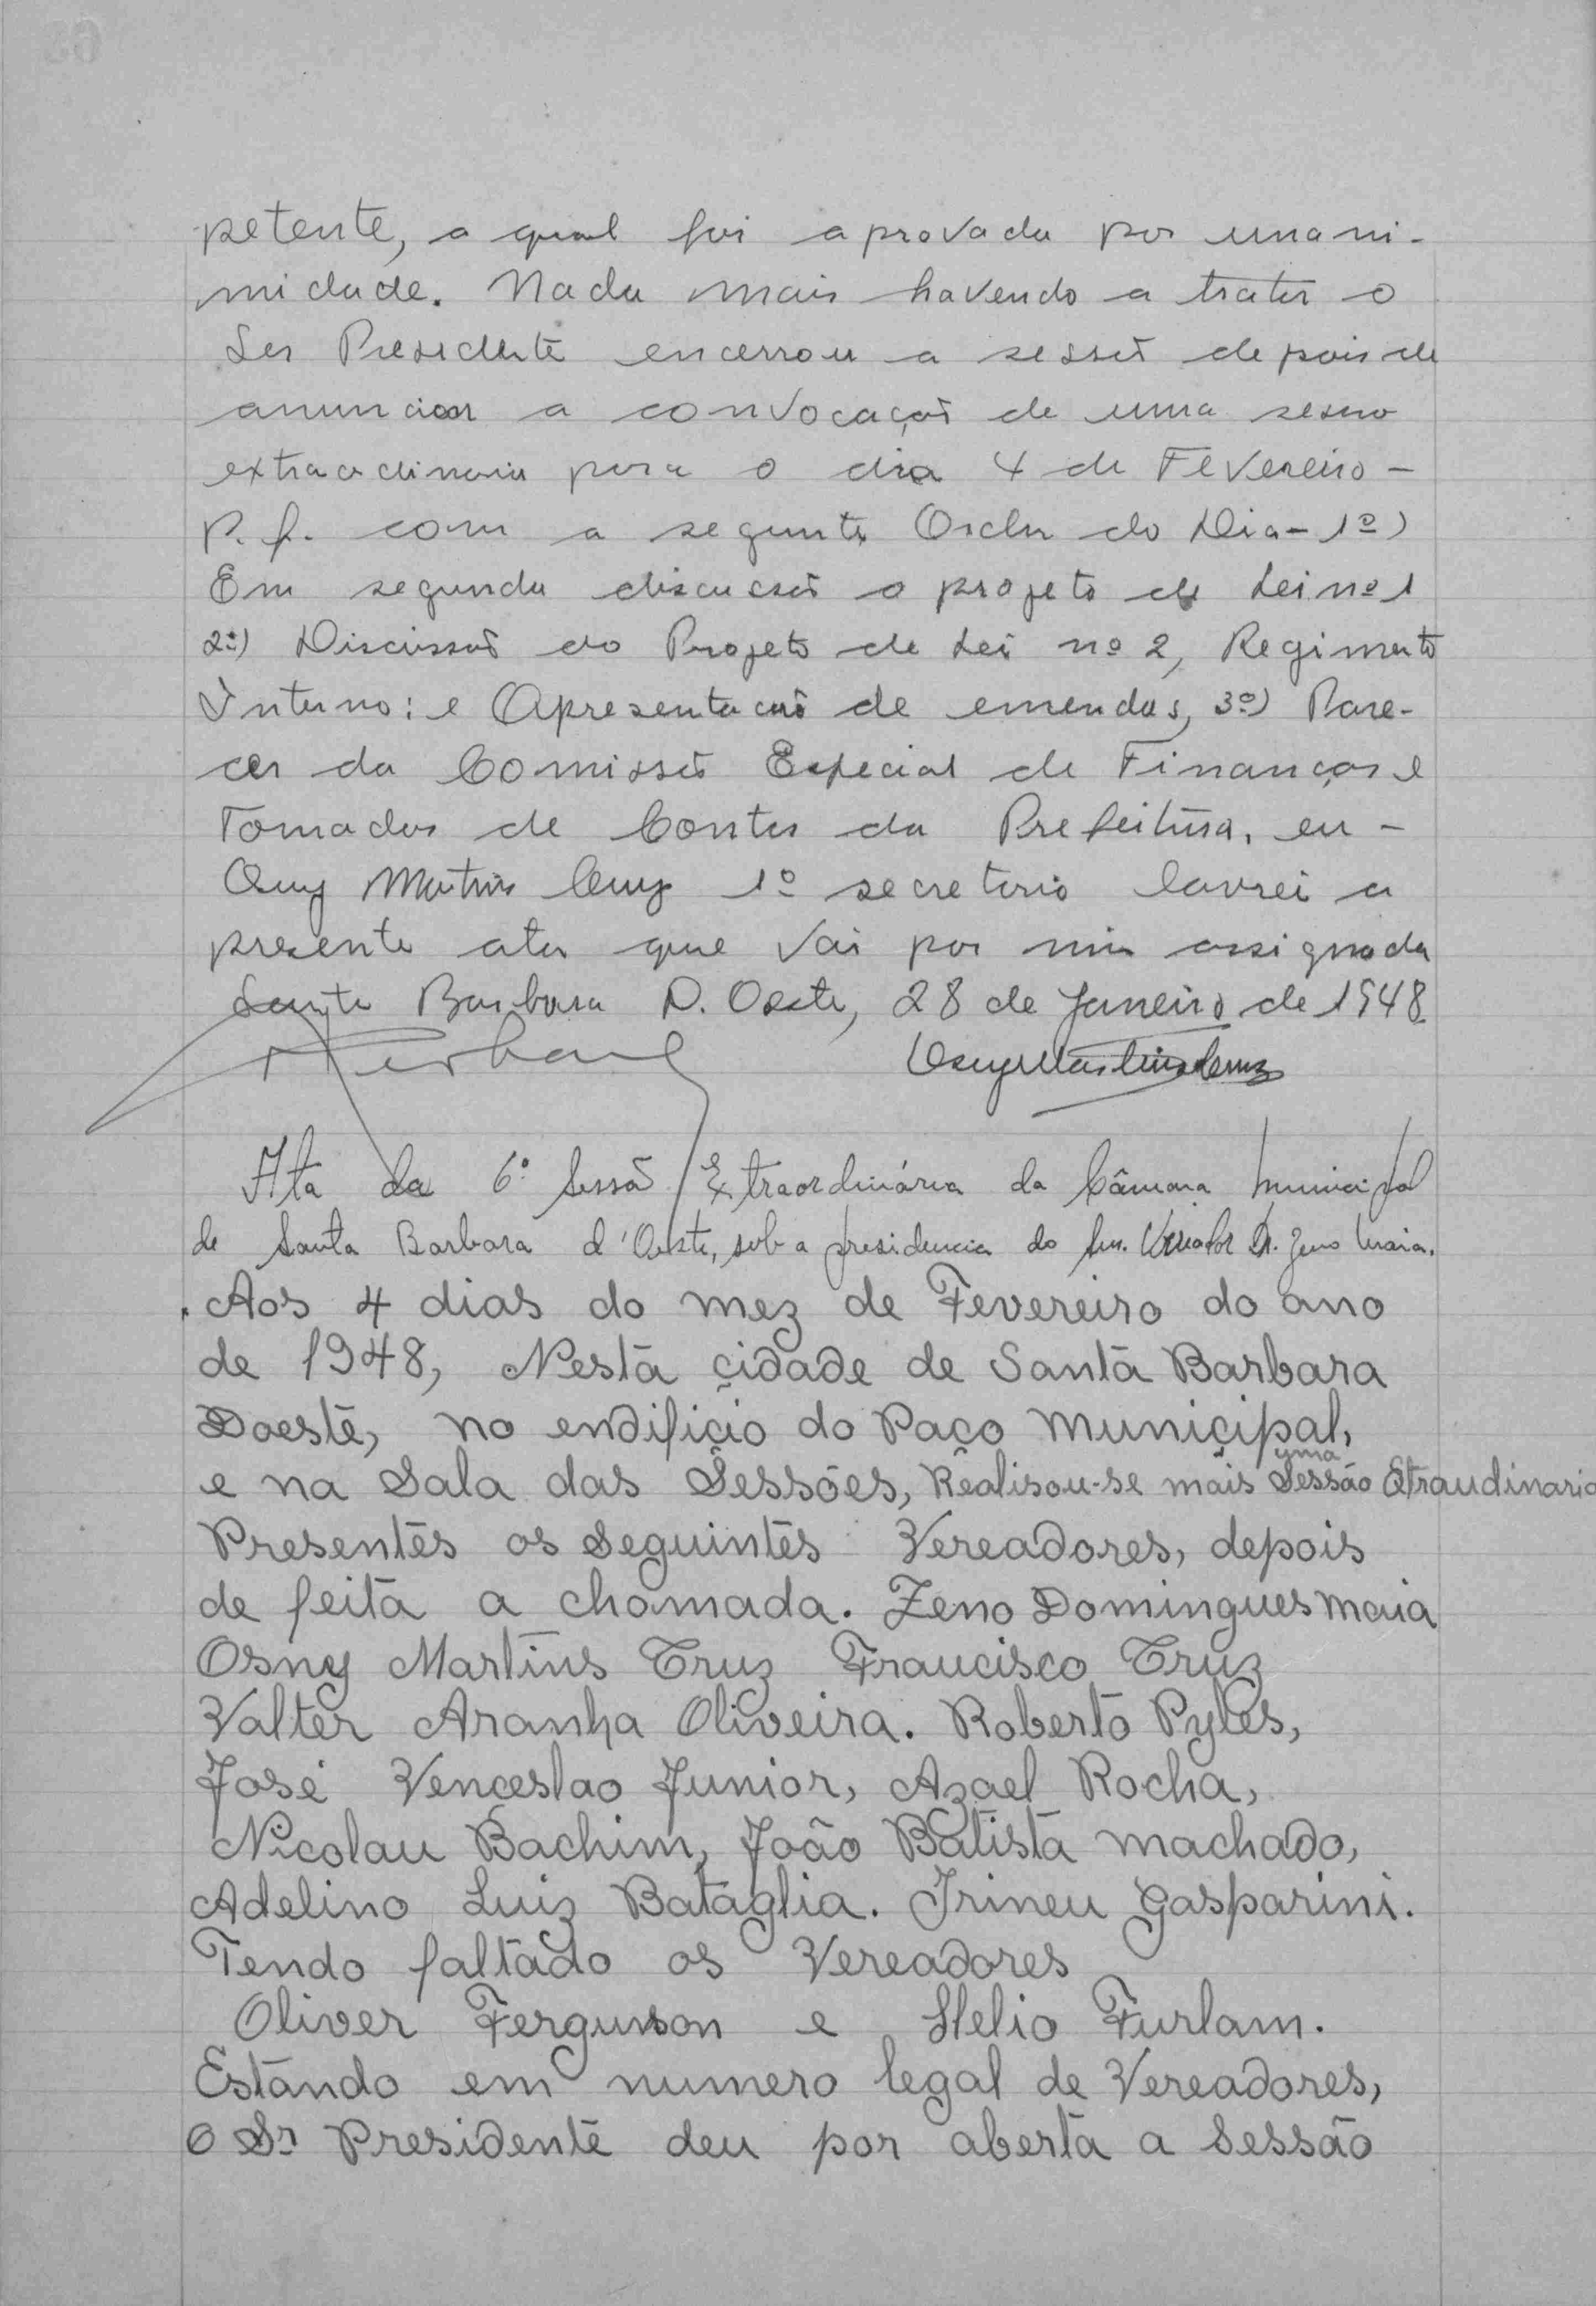 petente, a qual foi aprovada por unani-
midade. Nada mais havendo a tratar o
Snr Presidente encerrou a sessão depois de
anunciar a convocação de uma sessão
extraordinaria para o dia 4 de Fevereiro -
p. f. com a seguinte Ordem do Dia - 1º)
Em segunda discussão o projeto de Lei nº 1
2º) Discussão do Projeto de Lei nº 2, Regimento
Interno: e Apresentação de emendas, 3º) Pare-
cer da Comissão Especial de Finanças e
Tomadas de Contas da Prefeitura, eu -
Osny Martins Cruz 1º secretario lavrei a
presente ata que vai por mim assignada
Santa Barbara D. Oeste, 28 de Janeiro de 1948
Osny Martins Cruz
Ata da 6º Sessão Extraordinária da Câmara Municipal
de Santa Barbara d'Oeste, sob a presidencia do Snr. Vereador Dr. Zeno Maia.
Aos 4 dias do mez de Fevereiro do ano
de 1948, Nesta cidade de Santa Barbara
Doeste, no endificio do Paço Municipal,
e na Sala das Sessões, Realisou-se mais uma Sessão Etraudinaria
Presentes os Seguintes Vereadores, depois
de feita a chamada. Zeno Domingues Maia
Osny Martins Cruz Francisco Cruz
Valter Aranha Oliveira. Roberto Pyles,
José Venceslao Junior, Azael Rocha,
Nicolau Bachim, João Batista Machado,
Adelino Luiz Bataglia. Irineu Gasparini.
Tendo faltado os Vereadores
Oliver Ferguson e Helio Furlam.
Estando em numero legal de Vereadores,
O Sr Presidente deu por aberta a Sessão